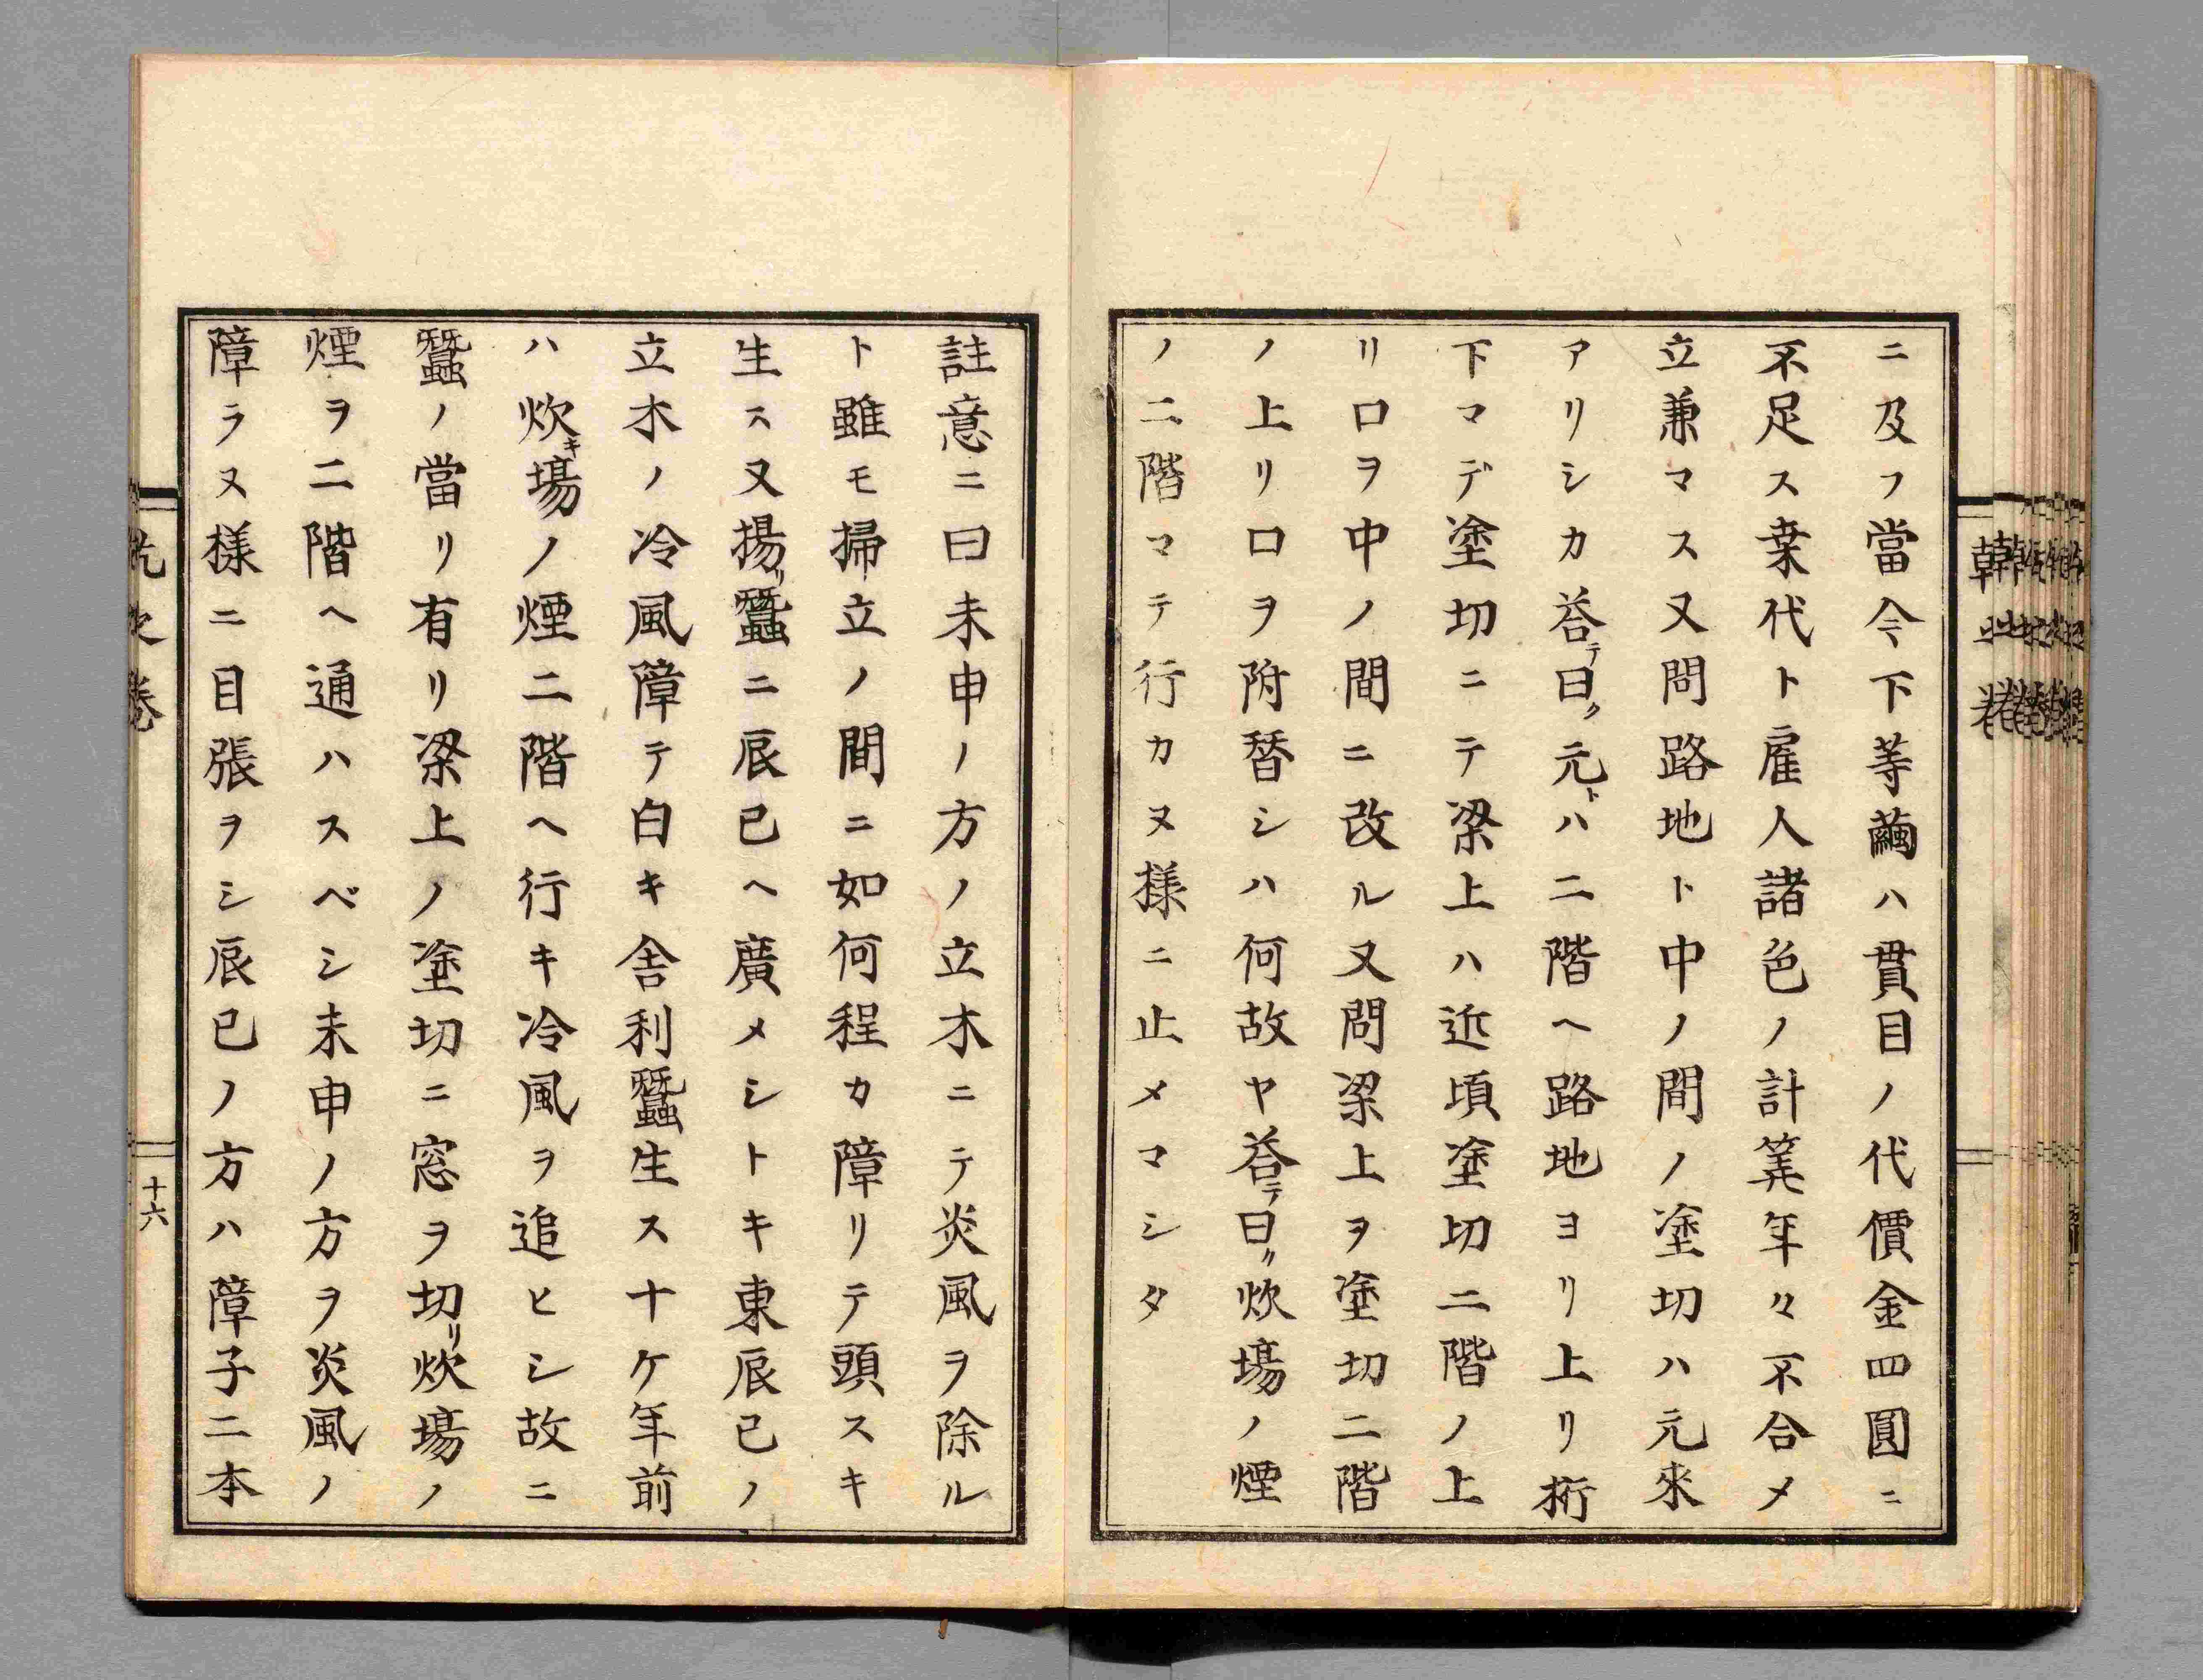 ニ及フ當今下等繭ハ貫目ノ代價金四圓ニ
不足ス桒代ト雇人諸色ノ計筭年々不合メ
立兼マス又問路地ト中ノ間ノ塗切ハ元來
アリシカ荅テ曰ク元トハ二階ヘ路地ヨリ上リ桁
下マデ塗切ニテ梁上ハ近頃塗切二階ノ上
リ口ヲ中ノ間ニ改ル又問梁上ヲ塗切二階
ノ上リ口ヲ附替シハ何故ヤ荅テ曰ク炊場ノ煙
ノ二階マテ行カヌ様ニ止メマシタ
註意ニ曰未申ノ方ノ立木ニテ炎風ヲ除ル
ト雖モ掃立ノ間ニ如何程カ障リテ頭スキ
生ス又揚リ蠶ニ辰巳ヘ廣メシトキ東辰巳ノ
立木ノ冷風障テ白キ舎利蠶生ス十ケ年前
ハ炊キ場ノ煙二階ヘ行キ冷風ヲ追ヒシ故ニ
蠶ノ當リ有リ梁上ノ塗切ニ窓ヲ切リ炊場ノ
煙ヲ二階ヘ通ハスベシ未申ノ方ヲ炎風ノ
障ラヌ様ニ目張ヲシ辰巳ノ方ハ障子二本
十六